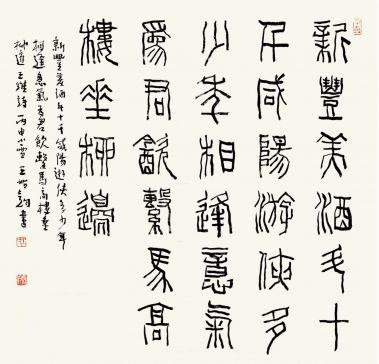 新豐美酒斗十
千咸陽游俠多
少年相逢意氣
爲君飲繫馬高
樓垂柳邊
新豐美酒斗十千咸陽遊俠多少年
相逢意氣爲君飲繫馬高樓垂
柳邊王維詩丙申小雪王書